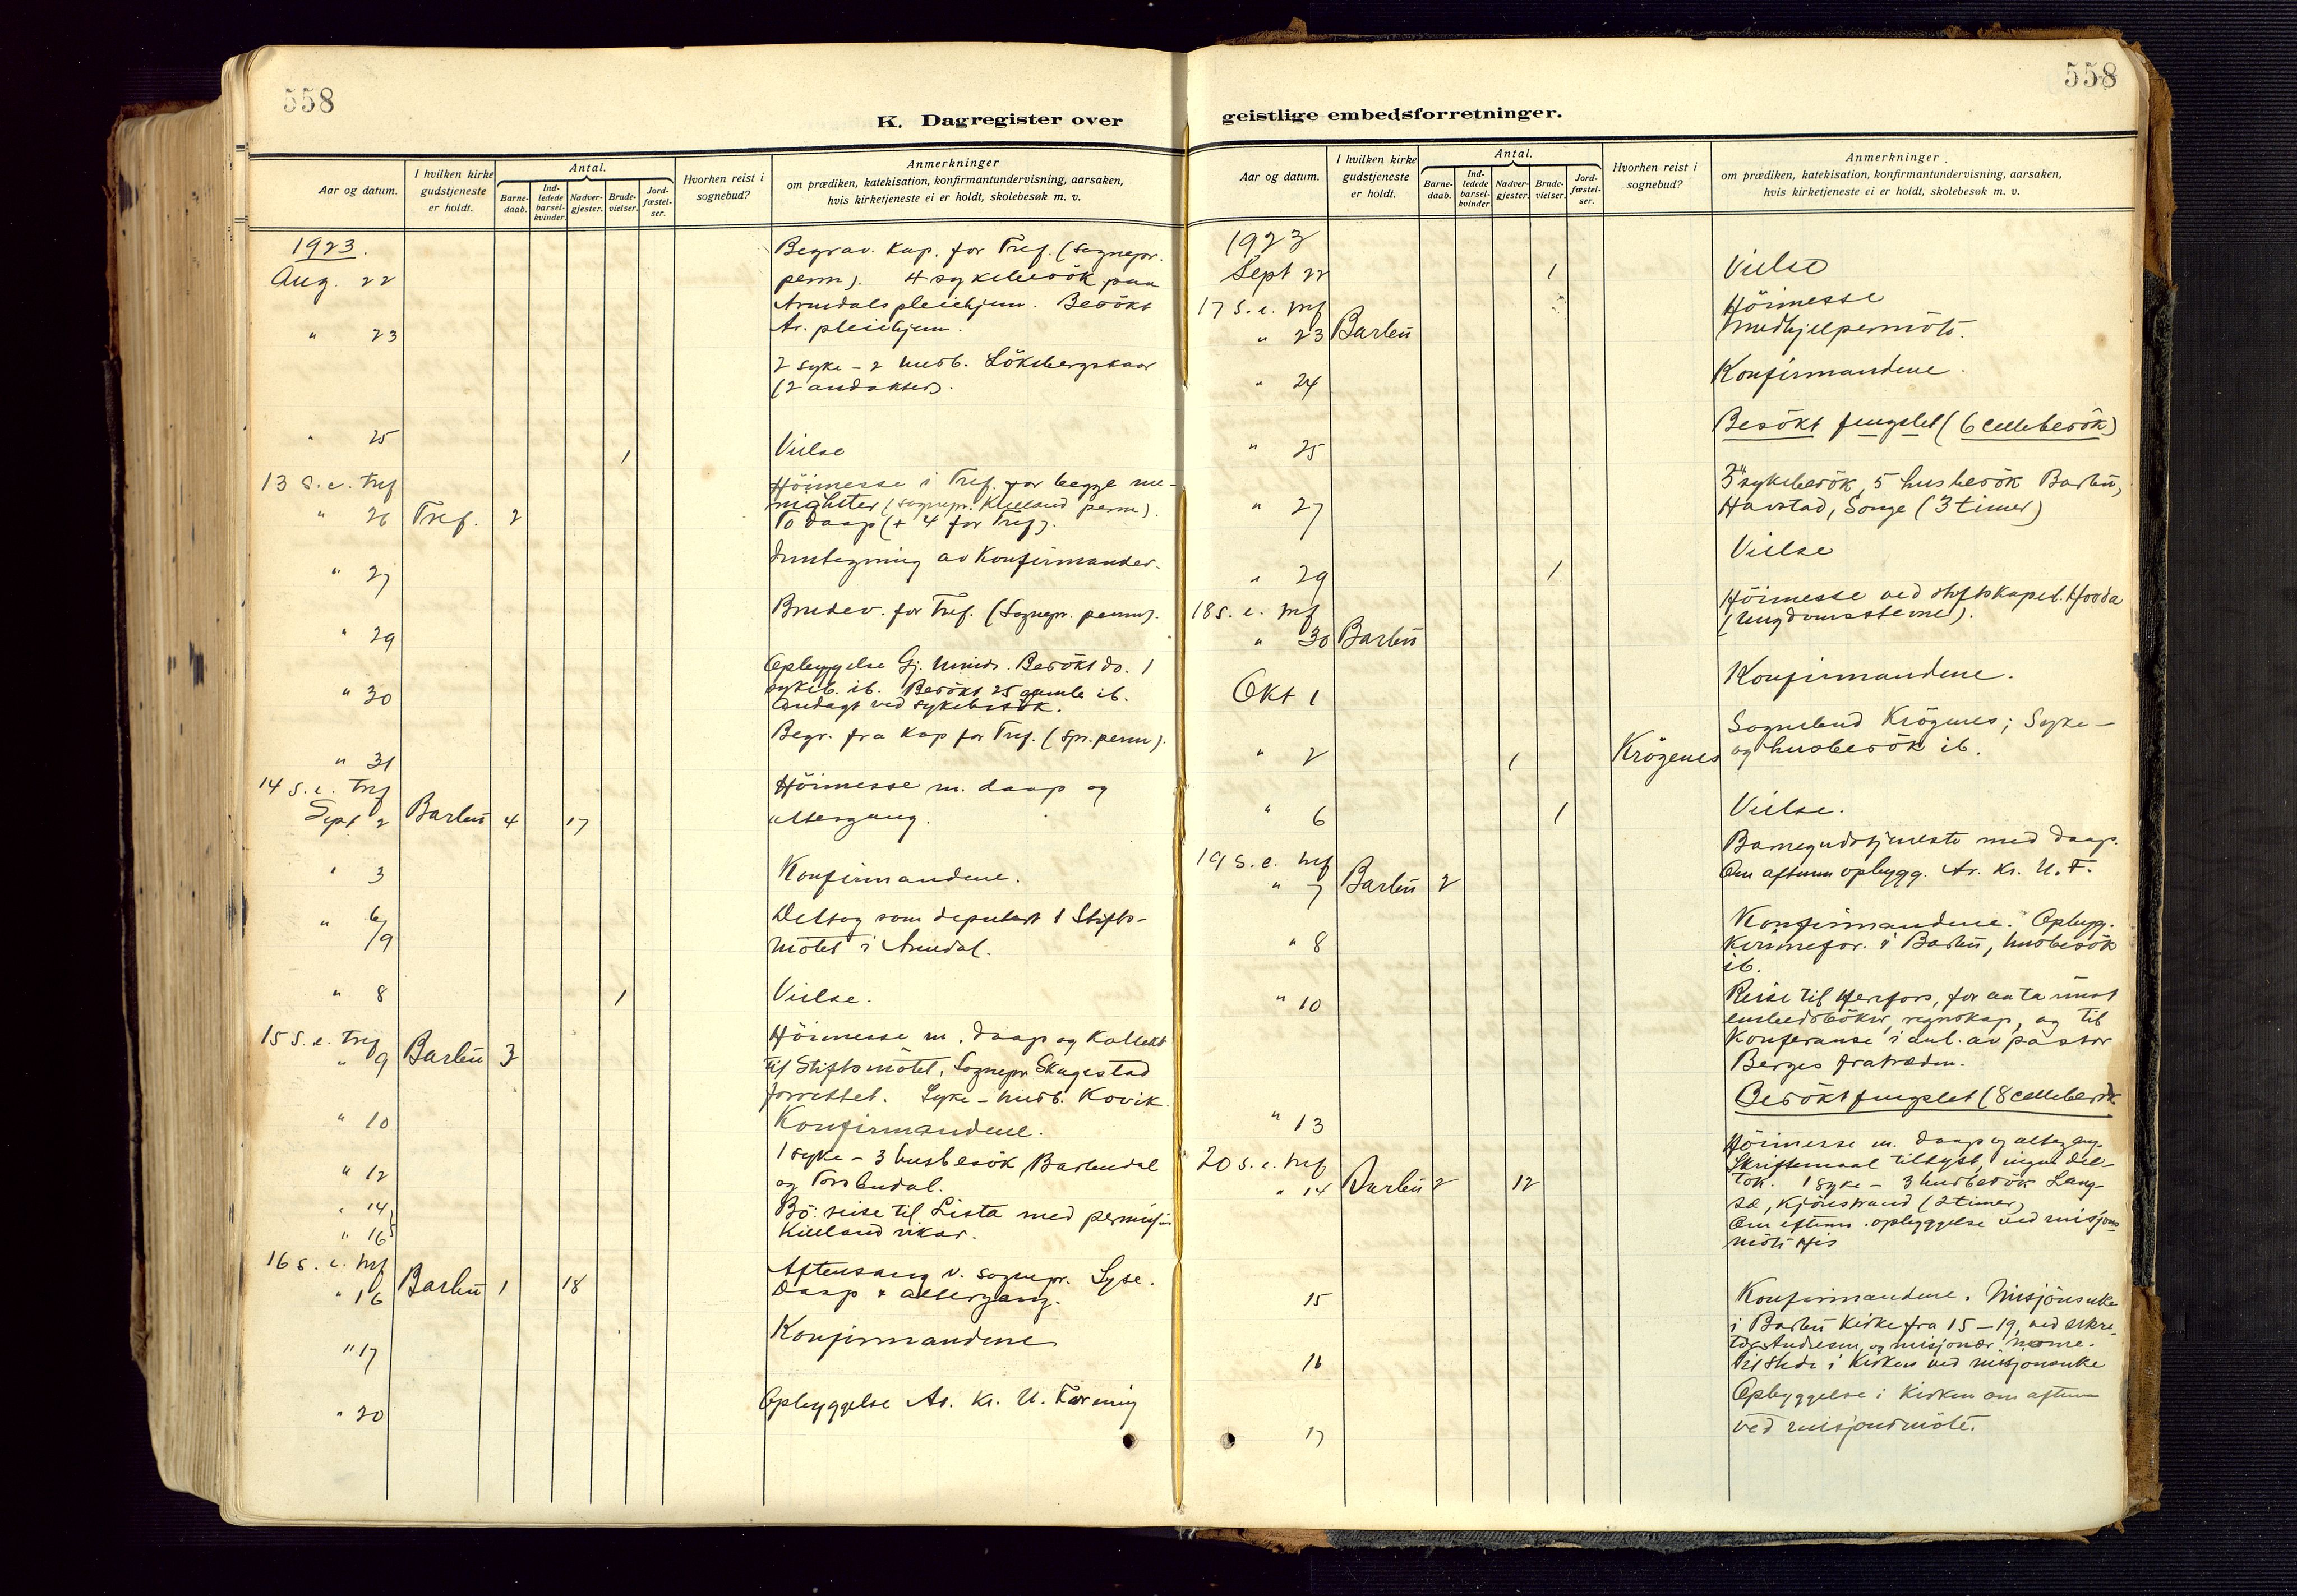 558
558
K. Dagregister over
geistlige embedsforretninger.
Aar og datum.
I hvilken kirke gudstjeneste er holdt.
Antal.
Barne-daab.
Ind-ledede barsel-kvinder
Nadver-gjester.
Brude-vielser.
Jord-fæstel-ser.
Hvorhen reist i sognebud?
Anmerkninger
om prædiken, katekisation, konfirmantundervisning, aarsaken,
hvis kirketjeneste ei er holdt, skolebesøk m. v.
1923.
Begrav. Kap. for Tref. (Sognepr.
Aug. 22
perm). 4 sykebesök paa
Arendals pleiehjem. Besökt
" 23
Ar. pleiehjem.
2 syke - 2 husb.
(2 andakter).
" 25 1 Vielse
13 S. e. Tref
Höimesse i Tref. for begge me-
nigheter (sognepr. Kielland perm).
" 26 Tref. 2
To daap (+ 4 for Tref).
" 27
av Konfirmander.
" 29
Brudev. for Tref. (Sognepr. perm).
Opbyggelse Besökt do. 1
" 30
sykeb. ib. Besökt 25 gamle ib.
Andagt ved sykebesök.
" 31
Begr. fra Kap for Tref. (Spr. perm).
14 S. e. Tref
Höimesse m. daap og
Sept 2 Barbu 4 17
altergang.
" 3
Konfirmandene.
" 6/9
Deltog som deputert i Stifts-
mötet i Arendal.
" 8 1 Vielse.
15 S. e. Tref
Höimesse m. daap og Kollekt
" 9 Barbu 3
til Stiftsmötet, Sognepr Skagestad
forrettet. Syke - husb. Kovik.
" 10
Konfirmandene.
" 12
1 syke - 3 husbesök Barbudal
og
" 14
reise til Lista med permisjon
" 16
Kielland vikar.
16 S. e. Tref
Aftensang v. sognepr. Lyse.
" 16 Barbu 1 18
Daap + altergang.
" 17
Konfirmandene
" 20
Opbyggelse Ar. Kr. U. Forening
Aar og datum.
I hvilken kirke gudstjeneste er holdt.
Antal.
Barne-daab.
Ind-ledede barsel-kvinder
Nadver-gjester.
Brude-vielser.
Jord-fæstel-ser.
Hvorhen reist i sognebud?
Anmerkninger.
om prædiken, katekisation, konfirmantundervisning, aarsaken,
hvis kirketjeneste ei er holdt, skolebesøk m. v.
1923
Sept 22 1 Vielse
17 S. e. Tref
Höimesse
" 23 Barbu
Medhjelpermöte.
" 24
Konfirmandene.
" 25
Besökt fengslet (6 cellebesök)
" 27
3 sykebesök, 5 husbesök Barbu,
Havstad, Songe (3 timer)
" 29 1 Vielse
18 S. e. Tref
Höimesse ved stiftskapel.
" 30 Barbu
(ungdomsstevne).
Okt 1
Konfirmandene.
Sognebud Krögenes; Syke-
" 2 1 Krögenes
og husbesök ib.
" 6 1 Vielse.
19 S. e. Tref
Barnegudstjeneste med daap.
" 7 Barbu 2
Om aftenen opbygg. Ar. Kr. U. F.
" 8
Konfirmandene. Opbygg.
Kvinnefor. i Barbu, husbesök
ib.
" 10
Reise til Herefoss, for aa ta imot
embedsböker, regnskap, og til
Konferanse i anl. av pastor
Berges fratræden.
" 13
Besökt fengslet (8 cellebesök
20 S. e. Tref
Höimesse m. daap og altergang.
Skriftemaal tillyst, ingen del-
" 14 Barbu 2 12
tok. 1 syke - 3 husbesök Lang-
sæ, Kjönstrand (2 timer)
Om eftm. opbyggelse ved misjons
möte His
15
Konfirmandene. Misjonsuke
i Barbu Kirke fra 15-19, ved sekre-
tær Andresen og misjonær
16
Tilstede i Kirken ved misjonsuke
17
Opbyggelse i Kirken om aftenen
ved misjonsmöte.